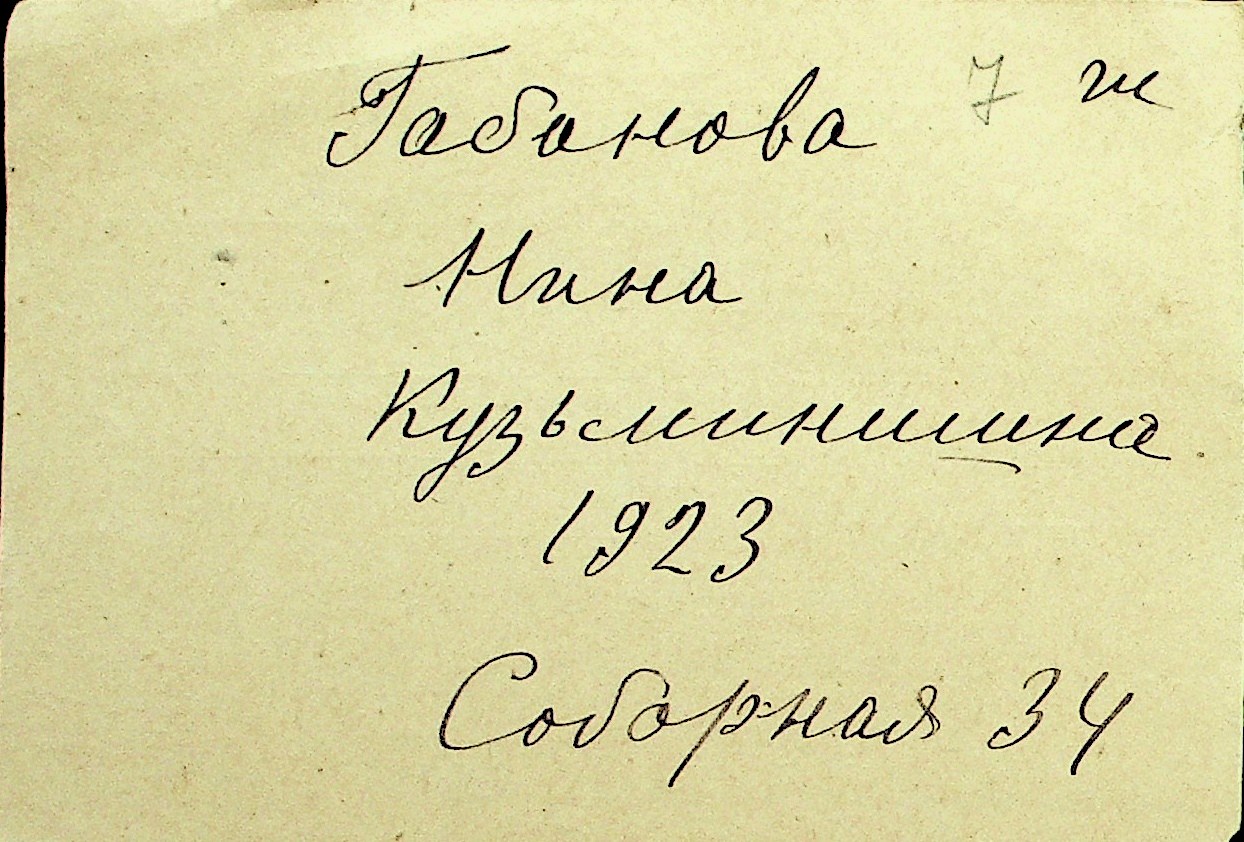 Габанова 7 ж
Нина
Кузьминишна
1923
Соборная 34